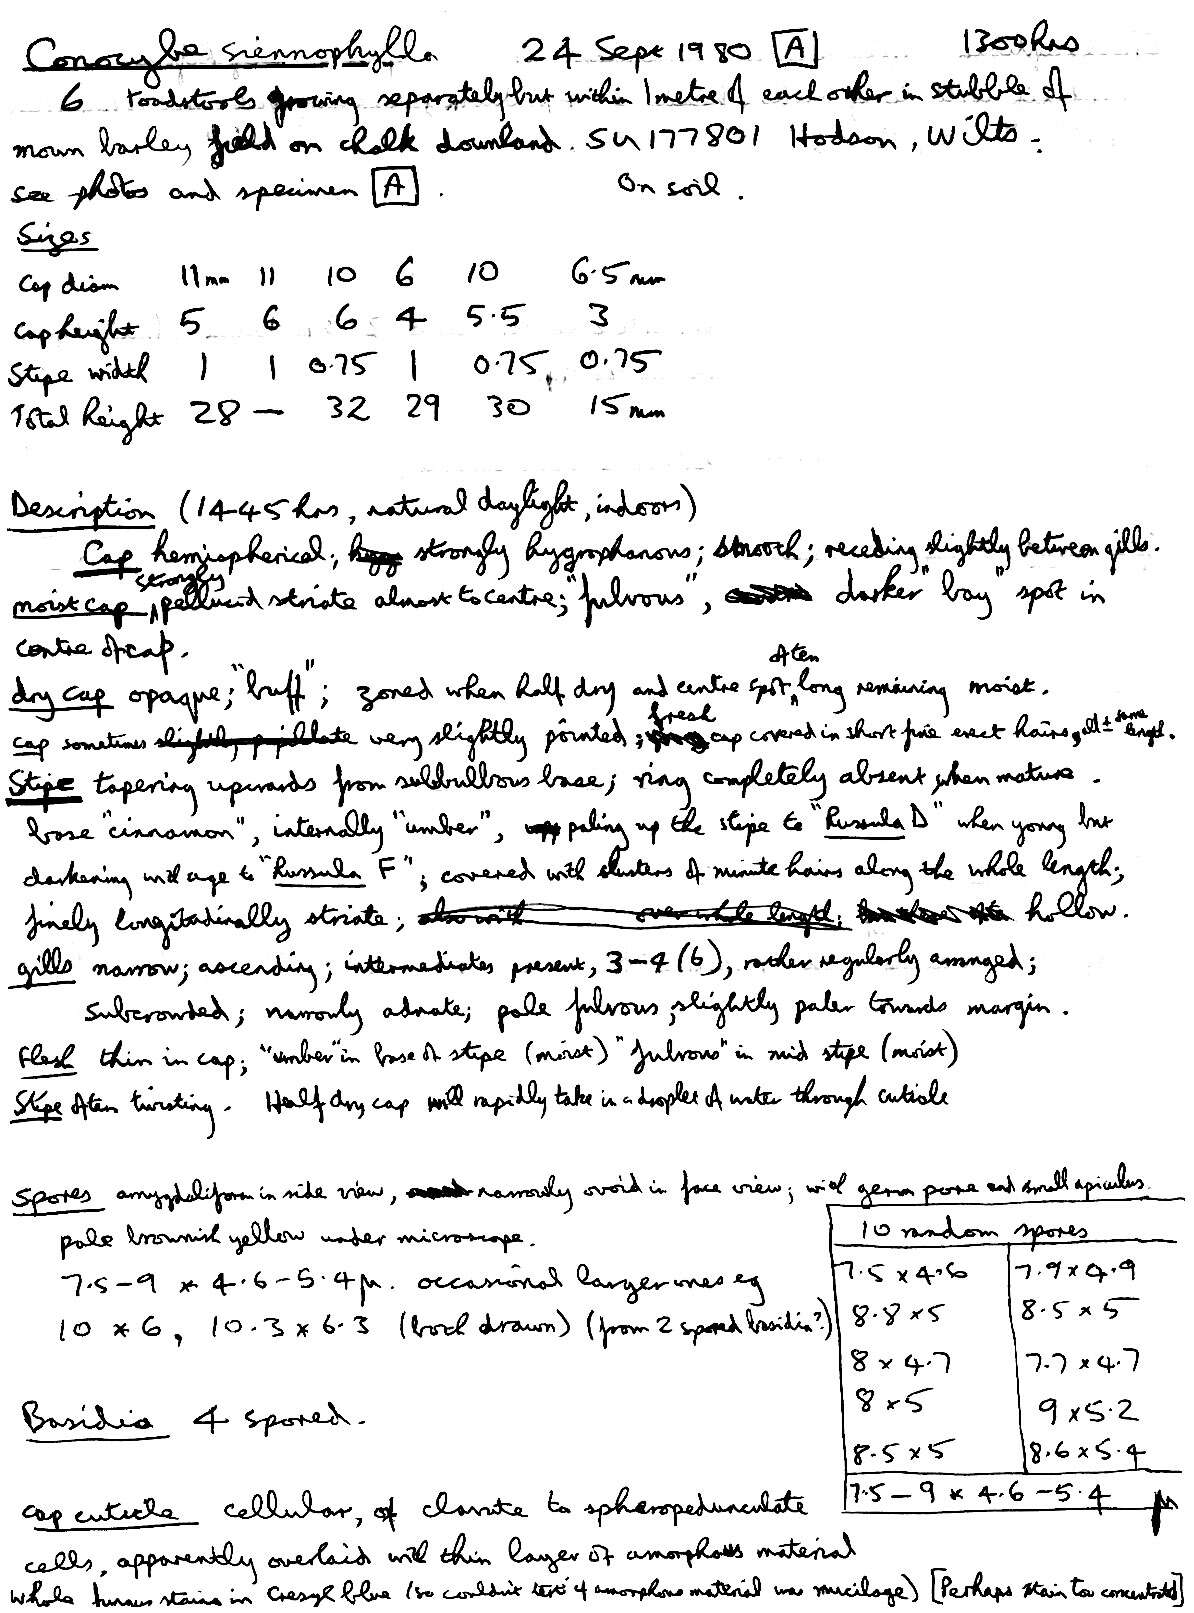 Conocybe siennophylla 24 Sept 1980 [A] 1300hrs
6 toadstools growing separately but within 1 metre of each other in stubble of
mown barley field on chalk downland. SU177801 Hodson, Wilts.
see photos and specimen [A]. On soil.
Sizes
Cap diam 11mm 11 10 6 10 6.5mm
Cap height 5 6 6 4 5.5 3
Stipe width 1 1 0.75 1 0.75 0.75
Total height 28 — 32 29 30 15mm
Description (1445hrs, natural daylight, indoors)
Cap hemispherical; strongly hygrophanous; smooth; receding slightly between gills.
moist cap strongly pellucid striate almost to centre; "fulvous", darker "bay" spot in
centre of cap.
dry cap opaque; "buff"; zoned when half dry and centre spot often long remaining moist.
cap sometimes slightly papillate very slightly pointed; fresh cap covered in short fine erect hairs, all ± same length.
Stipe tapering upwards from subbulbous base; ring completely absent, when mature.
base "cinnamon", internally "umber", paling up the stipe to "Russula D" when young but
darkening with age to "Russula F"; covered with clusters of minute hairs along the whole length;
finely longitudinally striate; also with over whole length; hollow.
gills narrow; ascending; intermediates present, 3-4 (6), rather regularly arranged;
subcrowded; narrowly adnate; pale fulvous, slightly paler towards margin.
Flesh thin in cap; "umber" in base of stipe (moist) "fulvous" in mid stipe (moist)
Stipe often twisting. Half dry cap will rapidly take in a droplet of water through cuticle
Spores amygdaliform in side view, narrowly ovoid in face view; with germ pore and small apiculus.
pale brownish yellow under microscope.
7.5-9 × 4.6-5.4µ. occasional larger ones eg
10 × 6, 10.3 × 6.3 (both drawn) (from 2 spored basidia?)
10 random spores
7.5 × 4.6 7.9 × 4.9
8.8 × 5 8.5 × 5
8 × 4.7 7.7 × 4.7
8 × 5 9 × 5.2
8.5 × 5 8.6 × 5.4
7.5-9 × 4.6-5.4 µ
Basidia 4 spored.
cap cuticle cellular, of clavate to spheropedunculate
cells, apparently overlaid with thin layer of amorphous material
Whole fungus stains in Cresyl blue (so couldn't test if amorphous material was mucilage) [Perhaps stain too concentrated]